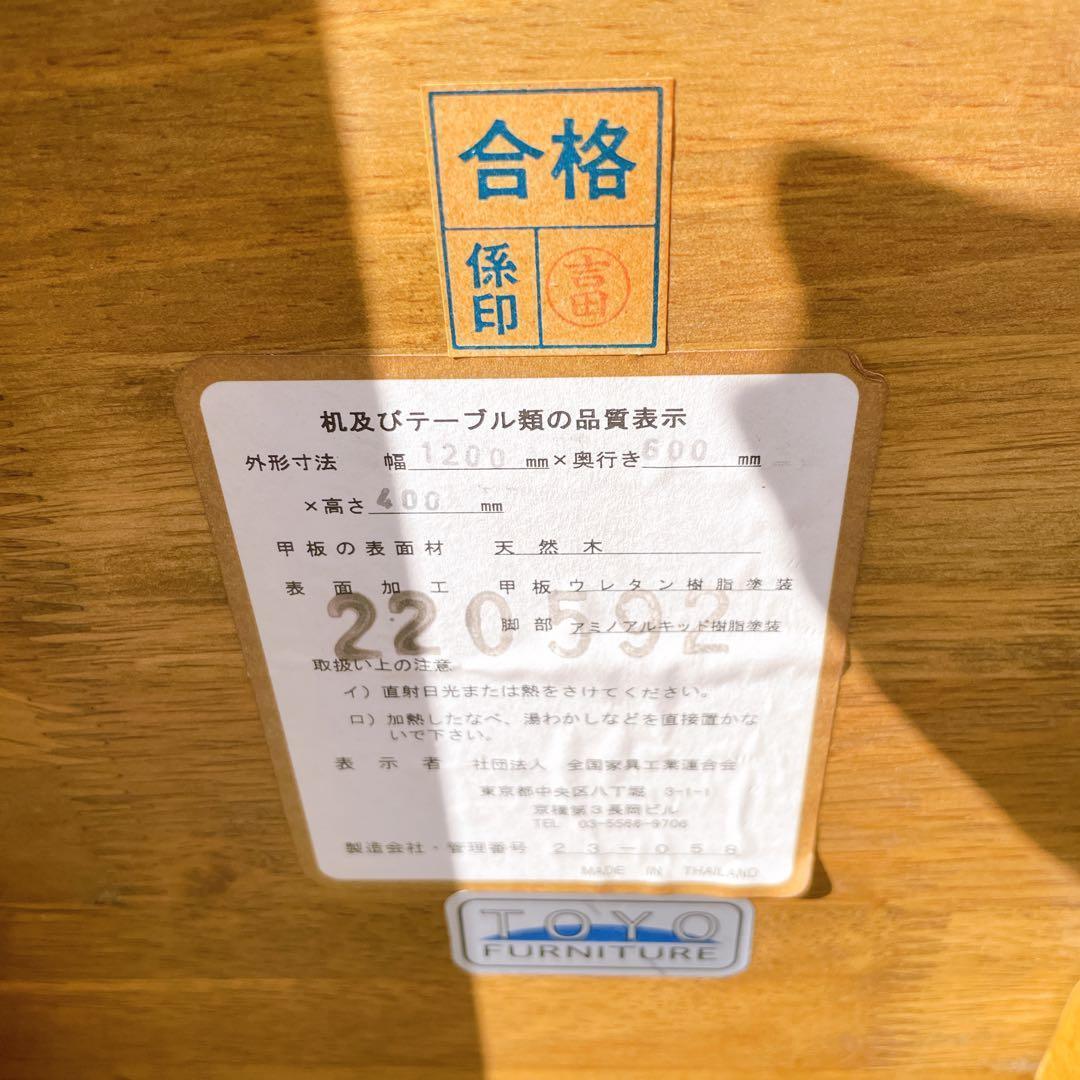 合格
係印
吉田
机及びテーブル類の品質表示
外形寸法 幅 1200 mm×奥行き 600 mm
×高さ 400 mm
甲板の表面材 天然木
表面加工 甲板 ウレタン樹脂塗装
脚部 アミノアルキッド樹脂塗装
220592
取扱い上の注意
イ) 直射日光または熱をさけてください。
ロ) 加熱したなべ、湯わかしなどを直接置かな
いで下さい。
表示者 社団法人 全国家具工業連合会
東京都中央区八丁堀 3-1-1
京橋第3長岡ビル
TEL 03-5566-9706
製造会社・管理番号 23-058
MADE IN THAILAND
TOYO
FURNITURE